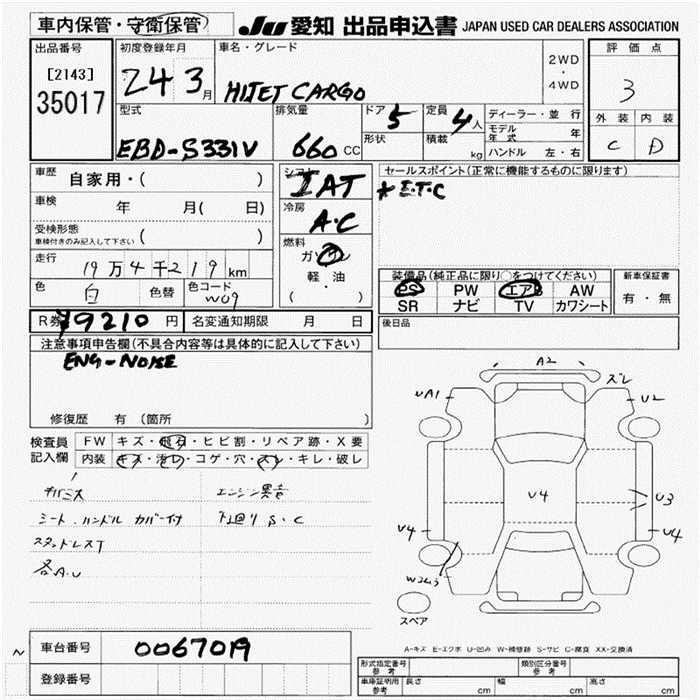 車内保管・守衛保管
JU 愛知 出品申込書 JAPAN USED CAR DEALERS ASSOCIATION
出品番号
[2143]
35017
初度登録年月
24 3月
車名・グレード
HIJET CARGO
2WD
・
4WD
評価点
3
外装 内装
C D
型式
EBD-S331V
排気量
660 CC
ドア 5
形状
定員 4人
積載 kg
ディーラー・並行
モデル年式 年
ハンドル 左・右
車歴 自家用・( )
車検 年 月( 日)
受検形態
車検付きのみ記入して下さい ( )
走行 19万4千219km
色 白 色替 色コード W09
シフト IAT
冷房 A・C
燃料
ガソリン
軽・油
( )
セールスポイント(正常に機能するものに限ります)
*E.T.C
装備品(純正品に限り○をつけてください)
PS PW エアB AW
SR ナビ TV カワシート
新車保証書
有・無
R券 ¥9210円 名変通知期限 月 日
後日品
注意事項申告欄(不具合内容等は具体的に記入して下さい)
ENG-NOISE
修復歴 有 (箇所 )
検査員記入欄
FW キズ・飛石・ヒビ割・リペア跡・X要
内装 キズ・汚れ・コゲ・穴・スレ・キレ・破レ
エンジン異音
シート.ハンドル カバー付 下回り S・C
スタッドレスT
各A.U
A2
ズレ
UA1
U2
U4
U3
U4
U4
W2U3
スペア
A-キズ E-エクボ U-凹み W-補修跡 S-サビ C-腐食 XX-交換済
車台番号 0067019
登録番号
型式指定番号 参考
類別区分番号 参考
車庫証明用 参考 長さ cm 幅 cm 高さ cm